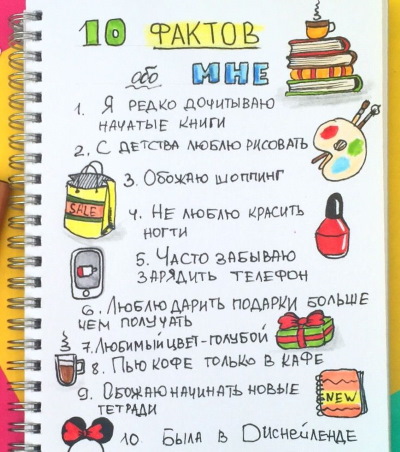 10 ФАКТОВ
обо МНЕ
1. Я РЕДКО ДОЧИТЫВАЮ
НАЧАТЫЕ КНИГИ
2. С ДЕТСТВА ЛЮБЛЮ РИСОВАТЬ
3. ОБОЖАЮ ШОППИНГ
SALE
4. НЕ ЛЮБЛЮ КРАСИТЬ
НОГТИ
5. ЧАСТО ЗАБЫВАЮ
ЗАРЯДИТЬ ТЕЛЕФОН
6. ЛЮБЛЮ ДАРИТЬ ПОДАРКИ БОЛЬШЕ
ЧЕМ ПОЛУЧАТЬ
7. ЛЮБИМЫЙ ЦВЕТ-ГОЛУБОЙ
8. ПЬЮ КОФЕ ТОЛЬКО В КАФЕ
9. ОБОЖАЮ НАЧИНАТЬ НОВЫЕ
ТЕТРАДИ
NEW
10. БЫЛА В DИСНЕЙЛЕНДЕ